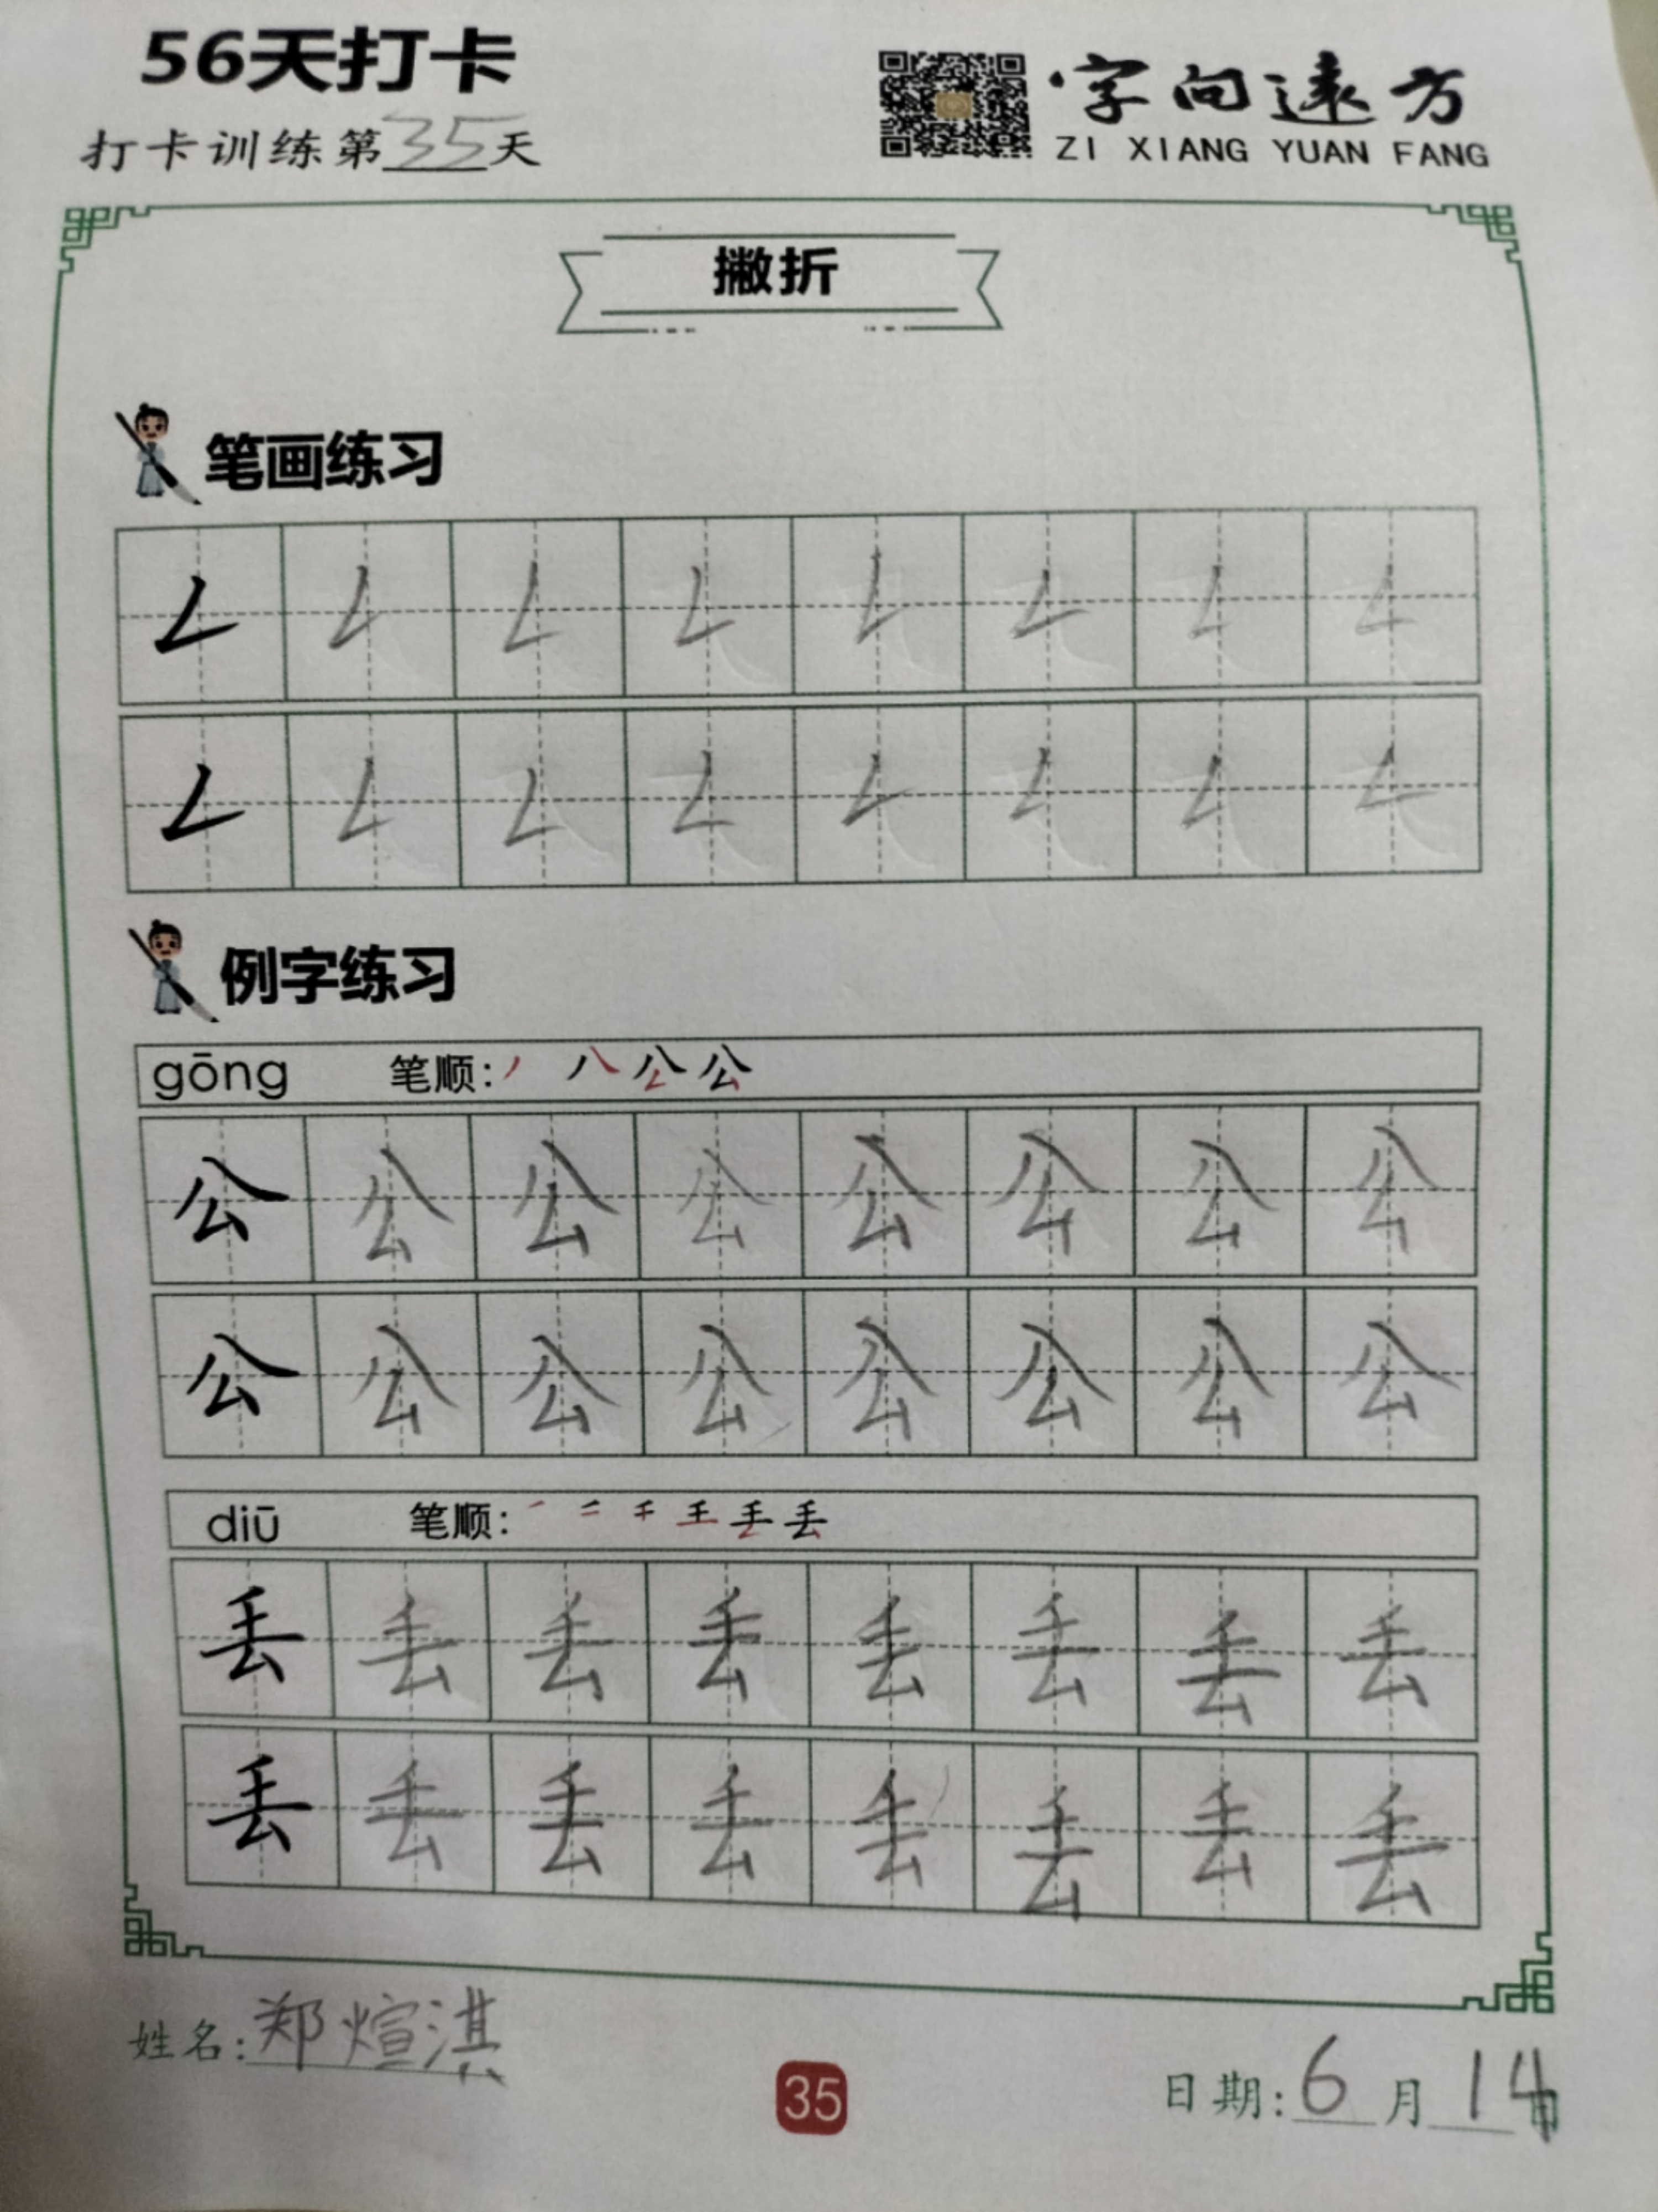 56天打卡
字向远方
打卡训练第35天
ZI XIANG YUAN FANG
撇折
笔画练习
𠃋 𠃋 𠃋 𠃋 𠃋 𠃋 𠃋 𠃋
𠃋 𠃋 𠃋 𠃋 𠃋 𠃋 𠃋 𠃋
例字练习
gōng 笔顺: 丿 八 公 公
公 公 公 公 公 公 公 公
公 公 公 公 公 公 公 公
diū 笔顺: 一 二 千 王 丢 丢
丢 丢 丢 丢 丢 丢 丢 丢
丢 丢 丢 丢 丢 丢 丢 丢
姓名:郑煊淇
35
日期:6月14日